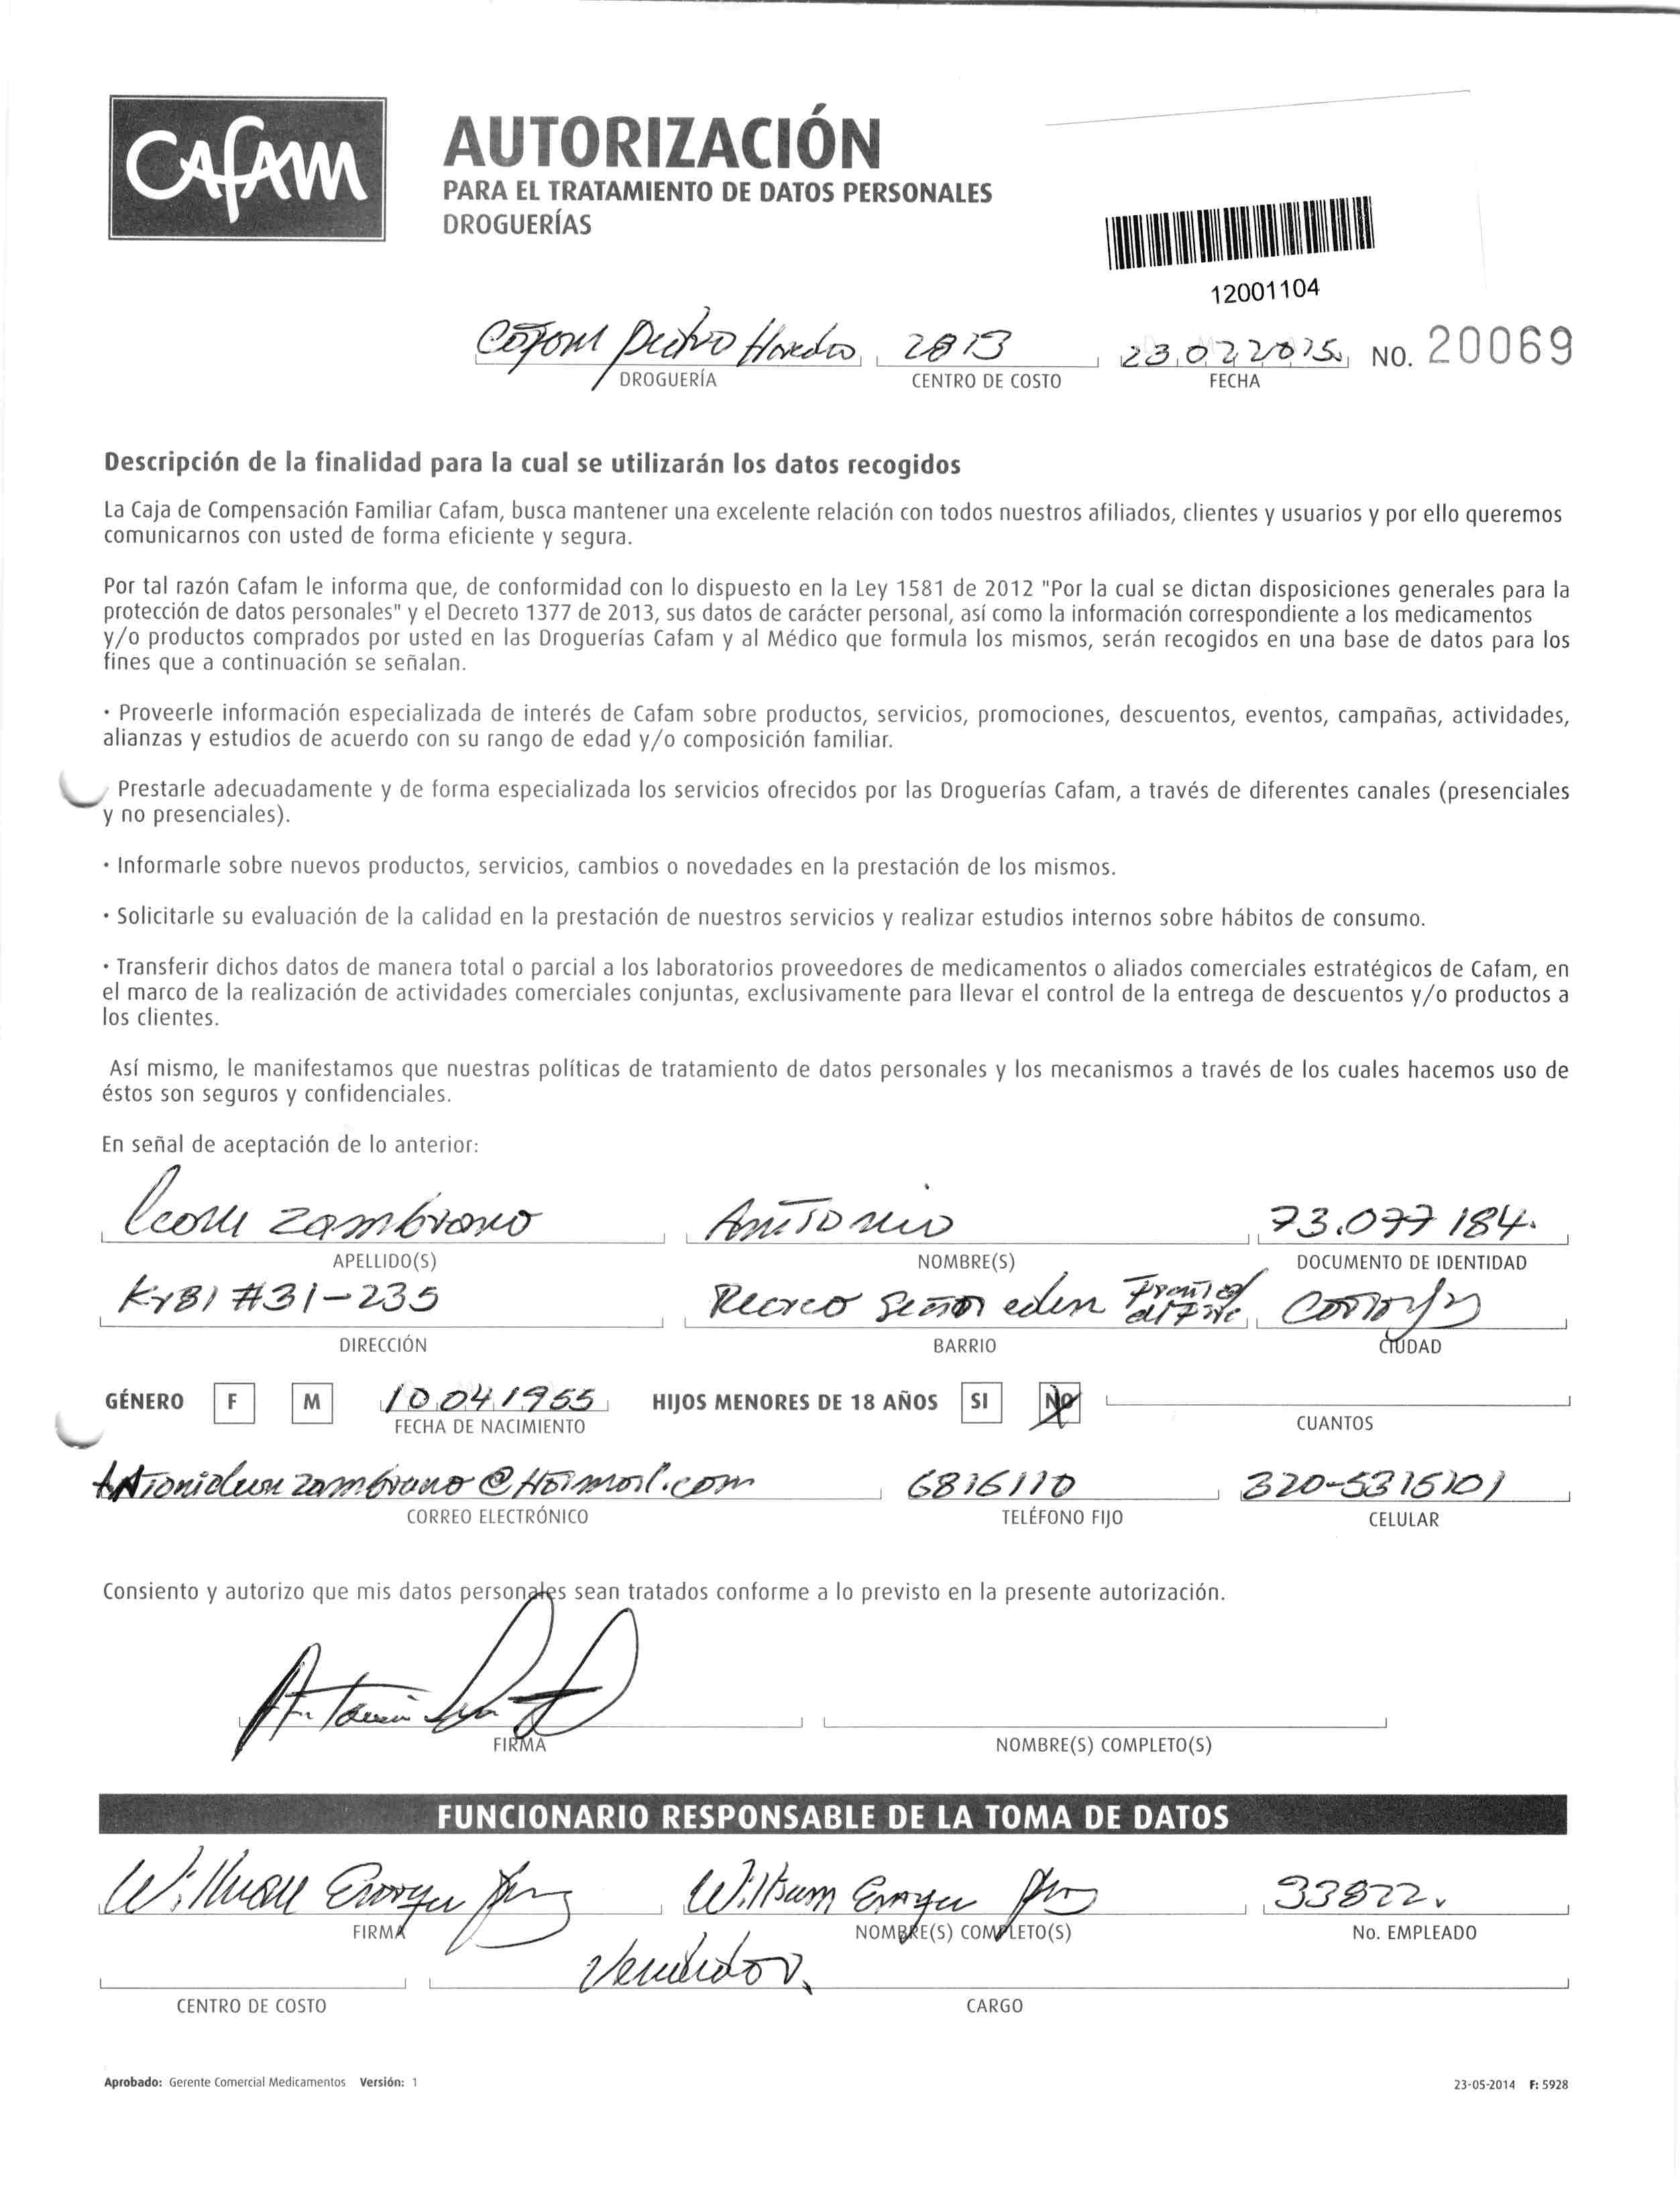 CAFAM
AUTORIZACIÓN
PARA EL TRATAMIENTO DE DATOS PERSONALES
DROGUERÍAS
12001104
Pedro 2013 23 02 2015 NO. 20069
DROGUERÍA CENTRO DE COSTO FECHA
Descripción de la finalidad para la cual se utilizarán los datos recogidos
La Caja de Compensación Familiar Cafam, busca mantener una excelente relación con todos nuestros afiliados, clientes y usuarios y por ello queremos
comunicarnos con usted de forma eficiente y segura.
Por tal razón Cafam le informa que, de conformidad con lo dispuesto en la Ley 1581 de 2012 "Por la cual se dictan disposiciones generales para la
protección de datos personales" y el Decreto 1377 de 2013, sus datos de carácter personal, así como la información correspondiente a los medicamentos
y/o productos comprados por usted en las Droguerías Cafam y al Médico que formula los mismos, serán recogidos en una base de datos para los
fines que a continuación se señalan.
· Proveerle información especializada de interés de Cafam sobre productos, servicios, promociones, descuentos, eventos, campañas, actividades,
alianzas y estudios de acuerdo con su rango de edad y/o composición familiar.
Prestarle adecuadamente y de forma especializada los servicios ofrecidos por las Droguerías Cafam, a través de diferentes canales (presenciales
y no presenciales).
· Informarle sobre nuevos productos, servicios, cambios o novedades en la prestación de los mismos.
· Solicitarle su evaluación de la calidad en la prestación de nuestros servicios y realizar estudios internos sobre hábitos de consumo.
· Transferir dichos datos de manera total o parcial a los laboratorios proveedores de medicamentos o aliados comerciales estratégicos de Cafam, en
el marco de la realización de actividades comerciales conjuntas, exclusivamente para llevar el control de la entrega de descuentos y/o productos a
los clientes.
Así mismo, le manifestamos que nuestras políticas de tratamiento de datos personales y los mecanismos a través de los cuales hacemos uso de
éstos son seguros y confidenciales.
En señal de aceptación de lo anterior:
zambrano Antonio 73.077 184.
APELLIDO(S) NOMBRE(S) DOCUMENTO DE IDENTIDAD
Kr81 #31-235 Recreo
DIRECCIÓN BARRIO CIUDAD
GÉNERO F M 10 04 1955 HIJOS MENORES DE 18 AÑOS SI NO
FECHA DE NACIMIENTO CUANTOS
6816110 320-5315101
CORREO ELECTRÓNICO TELÉFONO FIJO CELULAR
Consiento y autorizo que mis datos personales sean tratados conforme a lo previsto en la presente autorización.
FIRMA NOMBRE(S) COMPLETO(S)
FUNCIONARIO RESPONSABLE DE LA TOMA DE DATOS
William William 33822.
FIRMA NOMBRE(S) COMPLETO(S) No. EMPLEADO
Vendedor.
CENTRO DE COSTO CARGO
Aprobado: Gerente Comercial Medicamentos Versión: 1 23-05-2014 F: 5928